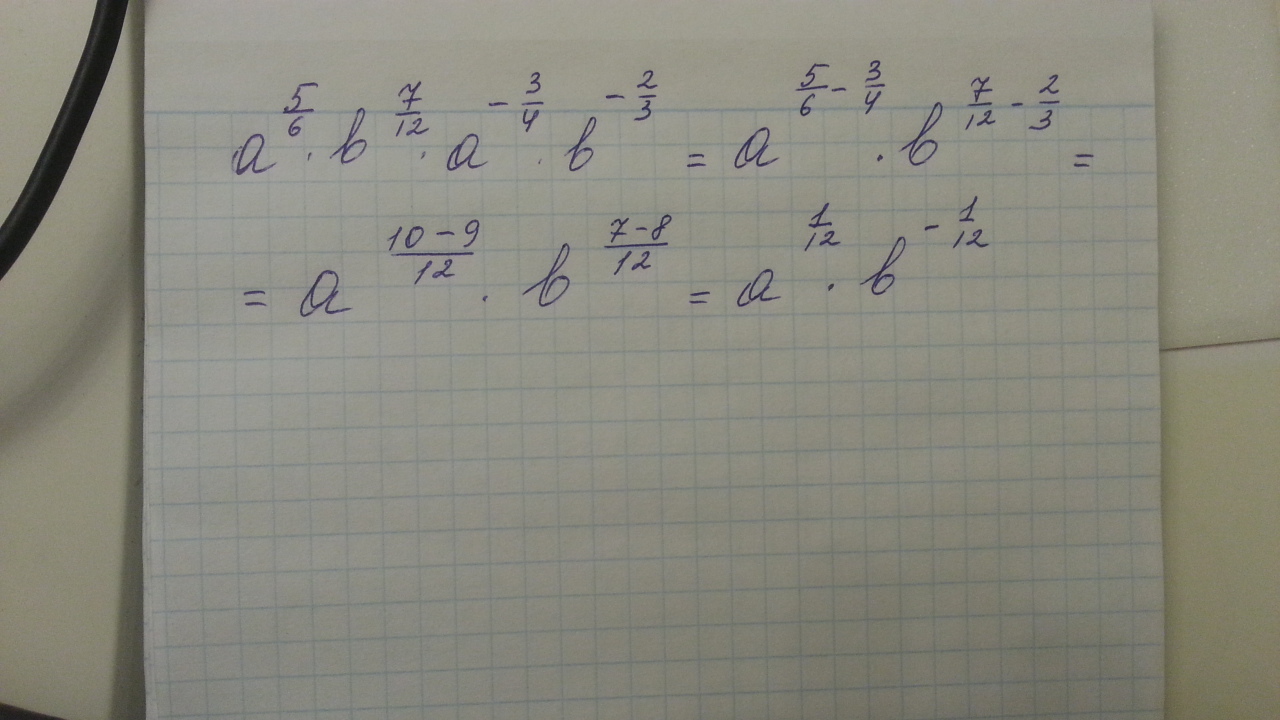 a^{5/6} · b^{7/12} · a^{-3/4} · b^{-2/3} = a^{5/6 - 3/4} · b^{7/12 - 2/3} =
= a^{(10-9)/12} · b^{(7-8)/12} = a^{1/12} · b^{-1/12}